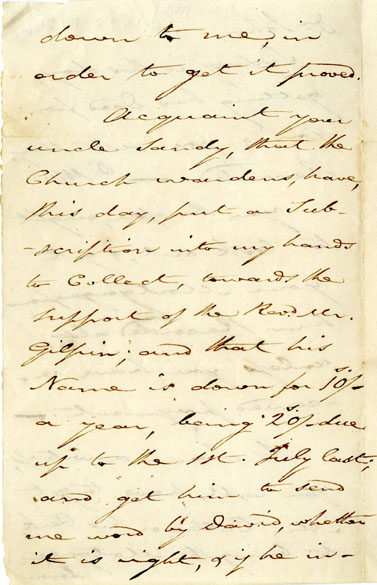 down to me, in
order to get it proved.
Acquaint your
uncle Sandy, that the
Church wardens, have,
this day, put a Sub-
-scription into my hands
to Collect, towards the
support of the Revd. Mr.
Gilpin; and that his
Name is down for 10s/-
a year, being 20s/- due
up to the 1st. July last;
and get him to send
me word by David, whether
it is right, & if he in-